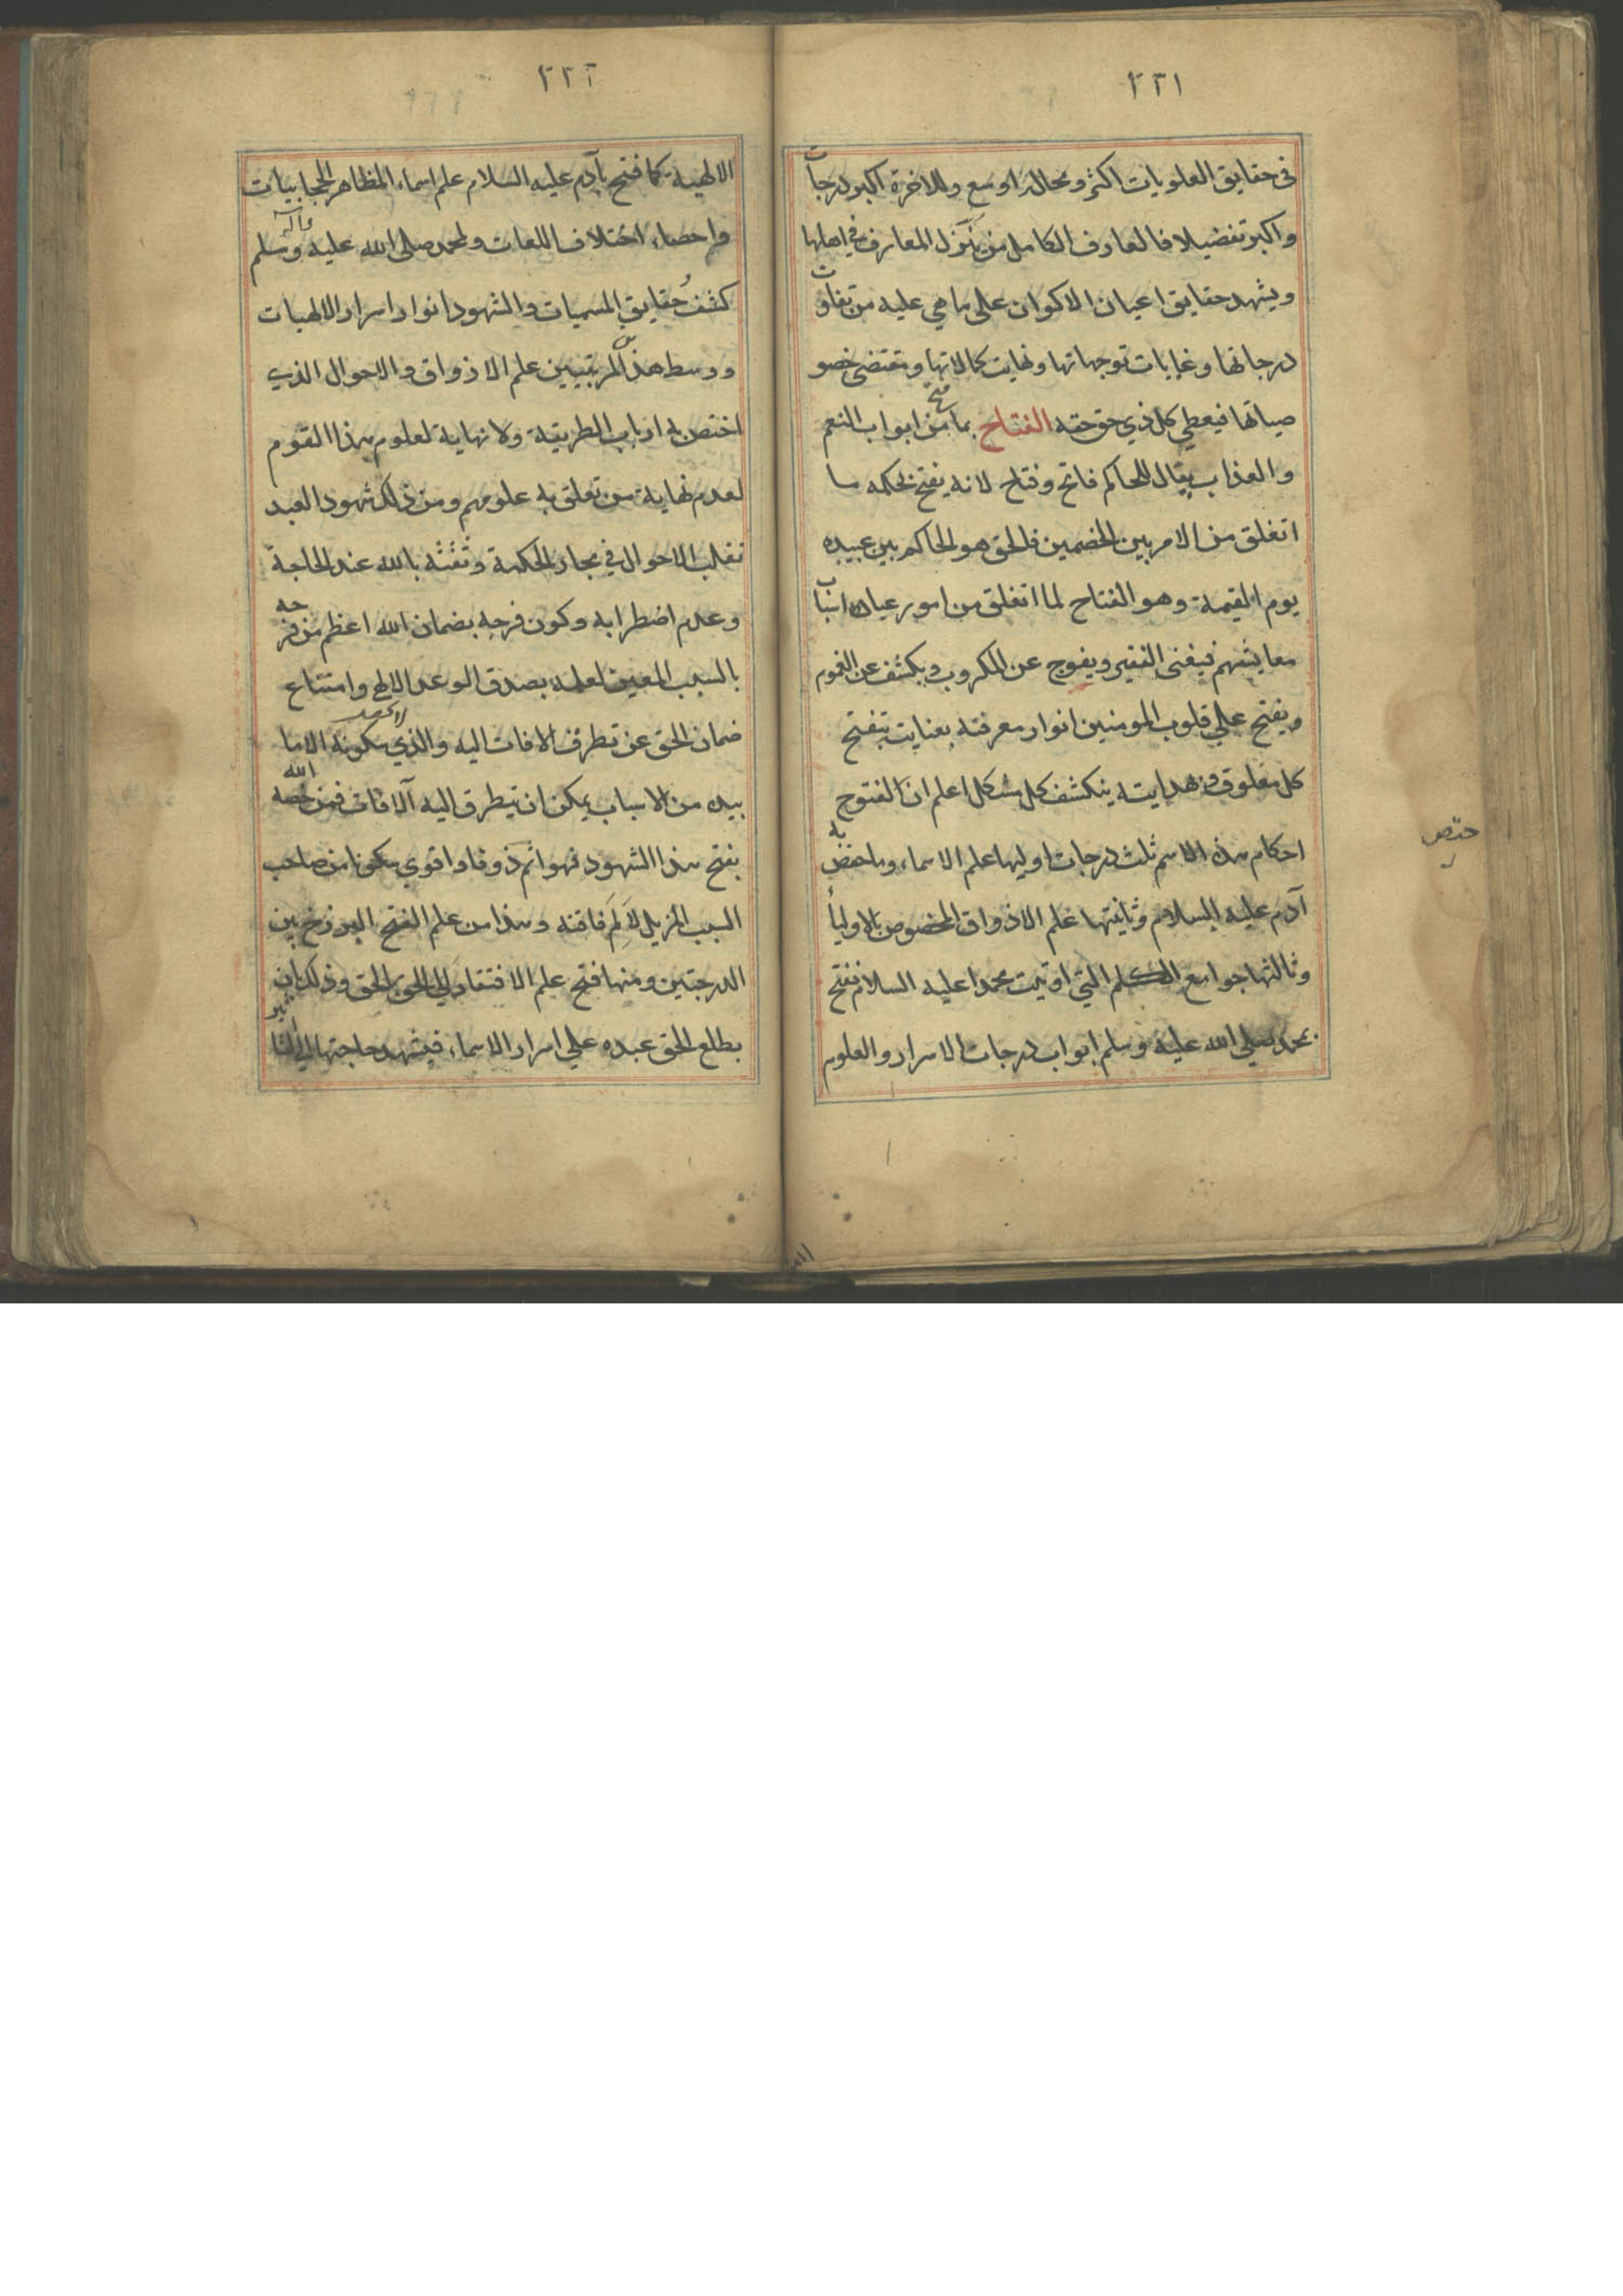 ٢٢١
في حقايق العلويات اكثر ومجاله اوسع وللاخرة اكبر درجات
واكبر تفضيلا فالعارف الكامل من نَزّل المعارف في اهلها
ويشهد حقايق اعيان الاكوان على ما هي عليه من تفاوت
درجاتها وغايات توجهاتها ونهايت كمالاتها ومقتضى خصو
صياتها فيعطي كل ذي حق حقه الفتاح بما فتح من ابواب النعم
والعذاب يقال للحاكم فاتح وفتاح لانه يفتح بحكمه ما
انغلق من الامر بين الخصمين فالحق هو الحاكم بين عبيده
يوم القيمة وهو الفتاح لما انغلق من امور عباده اسباب
معايشهم فيغنى الفقير ويفرج عن المكروب ويكشف عن الغموم
ويفتح علي قلوب المومنين انوار معرفته بعنايته يتفتح
كل مغلوق وبهدايته ينكشف كل مشكل اعلم ان الفتوح
احكام هذه الاسم ثلث درجات اوليها علم الاسماء وما اختص به
حتص
آدم عليه السلام وثانيتها علم الاذواق المخصوص بالاوليأ
وثالثتها جوامع الكلم التي اوتيت محمدا عليه السلام ففتح
بمحمد صلي الله عليه وسلم ابواب درجات الاسرار والعلوم
٢٢٢
الالهية كما فتح بآدم عليه السلام علم اسماء المظاهر الحجابيات
واحصاء اختلاف اللغات ولمحمد صلى الله عليه وآله وسلم
كشف حقايق المسميات والشهود انوار اسرار الالهيات
ووسط هذين المرتبتين علم الاذواق والاحوال الذي
اختص به ارباب الطريقة ولا نهاية لعلوم هذا القوم
لعدم نهاية من تعلق به علومهم ومن ذلك شهود العبد
تقلب الاحوال في مجار الحكمة وثقته بالله عند الحاجة
وعدم اضطرابه وكون فرحه بضمان الله اعظم من فرحه
بالسبب المعين لعلمه بصدق الوعد الالهي وامتناع
ضمان الحق عن تطرق الافات اليه والذي سكونه الا ما
بيده من الاسباب يمكن ان يتطرق اليه آلافات فمن خصه الله
بفتح هذا الشهود فهو اتم ذوقا واقوي سكونا من صاحب
السبب المزيل لاَلَم فاقته وهذا من علم الفتح البرزخ بين
الدرجتين ومنها فتح علم الافتقار الي الحق بالحق وذلك ان
يطلع الحق عبده علي اسرار الاسماء فيشهد حاجتها الي التاثير